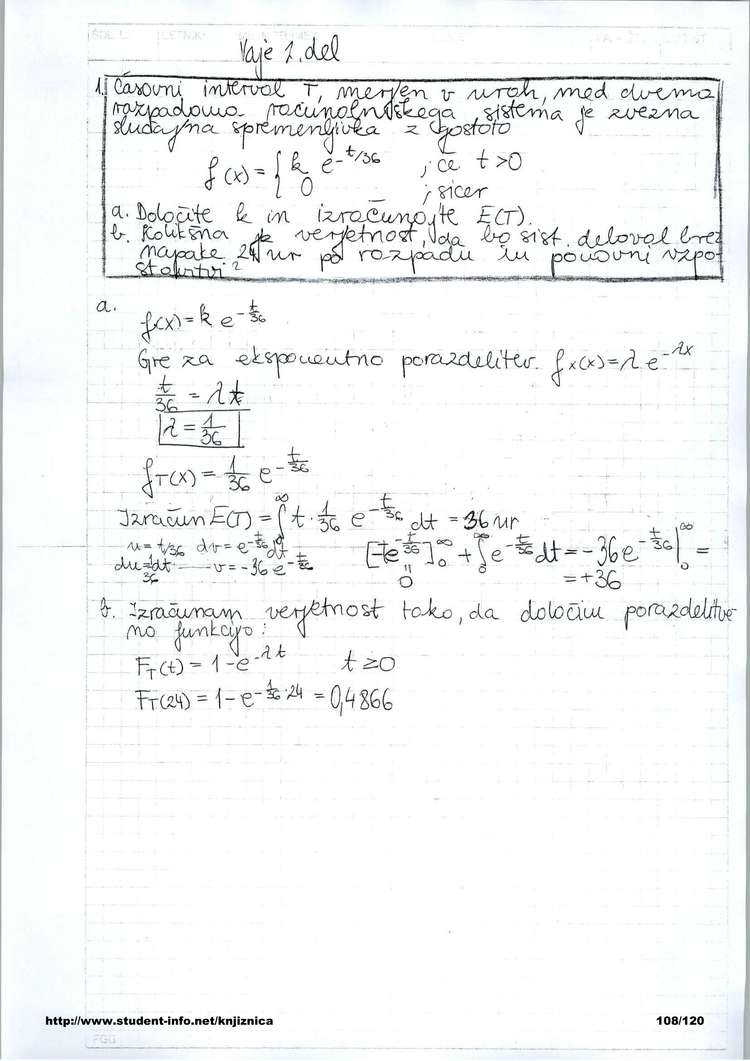 Vaje 2. del
1. Časovni interval T, merjen v urah, med dvema
razpadoma računalniškega sistema je zvezna
slučajna spremenljivka z gostoto
f(x) = { k e^{-t/36} ; če t>0
0 ; sicer
a. Določite k in izračunajte E(T).
b. Kolikšna je verjetnost, da bo sist. deloval brez
napake 24 ur po razpadu in ponovni vzpo-
stavitvi?
a.
f(x) = k e^{-t/36}
Gre za eksponentno porazdelitev. fx(x) = λ e^{-λx}
t/36 = λt
λ = 1/36
f_T(x) = 1/36 e^{-t/36}
Izračun E(T) = ∫_0^∞ t · 1/36 e^{-t/36} dt = 36 ur
u = t/36 dv = e^{-t/36} dt [-te^{-t/36}]_0^∞ + ∫_0^∞ e^{-t/36} dt = -36e^{-t/36} |_0^∞ =
du = 1/36 dt v = -36 e^{-t/36} 0 = +36
b. Izračunam verjetnost tako, da določim porazdelitve
no funkcijo:
F_T(t) = 1 - e^{-λt} t ≥ 0
F_T(24) = 1 - e^{-1/36 · 24} = 0,4866
http://www.student-info.net/knjiznica 108/120